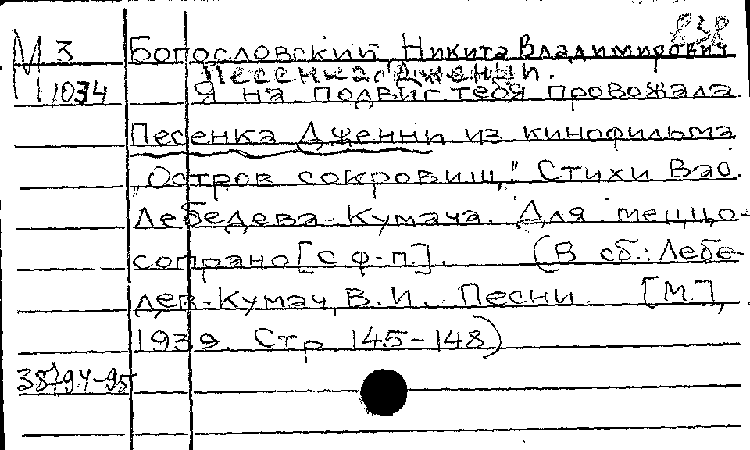 838
М 3 Богословский Никита Владимирович
Песенка Дженни.
1034 Я на подвиг тебя провожала
Песенка Дженни из кинофильма
„Остров сокровищ". Стихи Вас.
Лебедева-Кумача. Для меццо-
сопрано [с ф-п.]. (В сб.: Лебе-
дев-Кумач, В.И. Песни [М.],
1939. Стр 145-148)